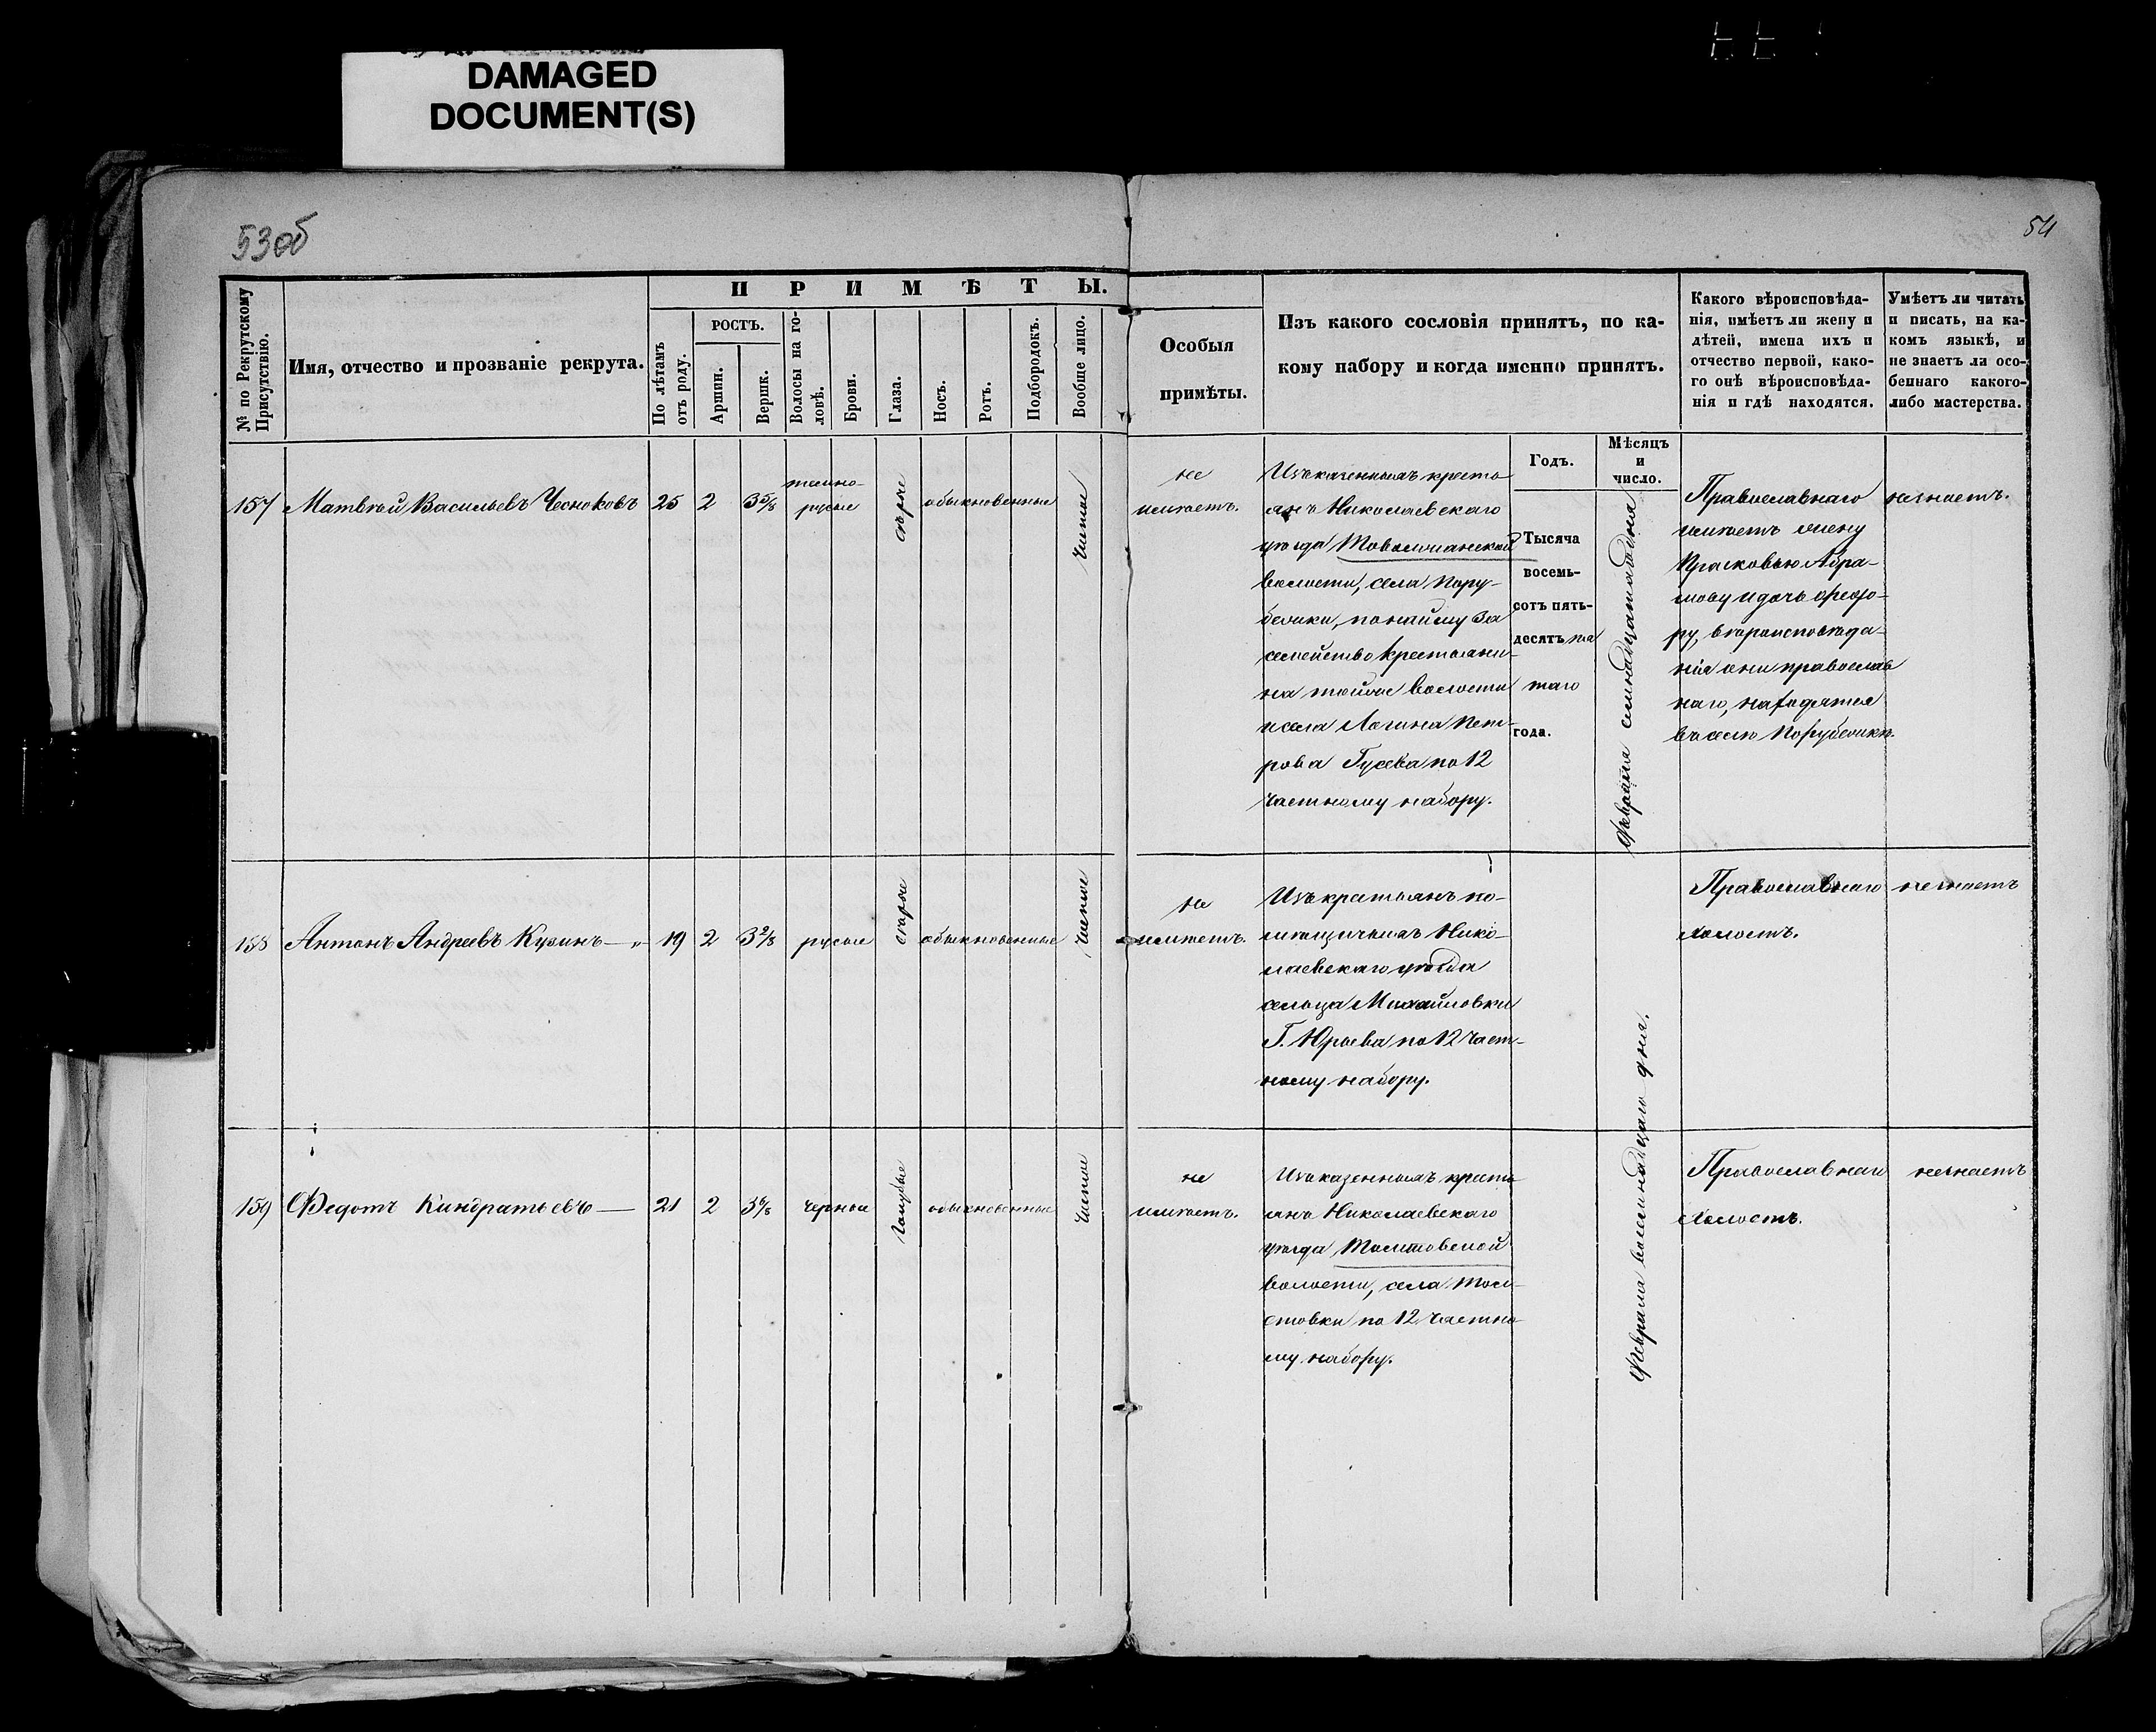 DAMAGED
DOCUMENT(S)
53об
54
№ по Рекрутскому
Присутствію.
Имя, отчество и прозваніе рекрута.
ПРИМѢТЫ.
По лѣтамъ
отъ роду.
РОСТЪ.
Аршин.
Вершк.
Волосы на го-
ловѣ.
Брови.
Глаза.
Носъ.
Ротъ.
Подбородокъ.
Вообще лицо.
Особыя
примѣты.
Изъ какого сословія принятъ, по ка-
кому набору и когда именно принятъ.
Какого вѣроисповѣда-
нія, имѣетъ ли жену и
дѣтей, имена ихъ и
отчество первой, како-
го онѣ вѣроисповѣда-
нія и гдѣ находятся.
Умѣетъ ли читать
и писать, на ка-
комъ языкѣ, и
не знаетъ ли осо-
беннаго какого-
либо мастерства.
Годъ.
Мѣсяцъ
и
число.
157 Матвѣй Васильевъ Чесноковъ 25 2 3 5/8
темно-
русые
сѣрые
обыкновенные
чистое
не
имѣетъ.
Изъ казенныхъ кресть
янъ Николаевскаго
уѣзда
волости, села Пору-
бежки, по найму за
семейство крестьяни-
на той же волости
и села Логина Пет-
рова Гусева по 12
частному набору.
Тысяча
восемь-
сотъ пять-
десятъ пя
таго
года.
Февраля семнадцатаго дня
Православнаго
имѣетъ жену
Прасковью Абра-
мову и дочь Ѳедо-
ру, вѣроисповѣда-
нія они православ
наго, находятся
въ селѣ Порубежкѣ.
незнаетъ.
158 Антонъ Андреевъ Кузинъ — „ 19 2 3 2/8
русые
сѣрые
обыкновенные
чистое
не
имѣетъ.
Изъ крестьянъ по-
мѣщичьихъ Нико-
лаевскаго уѣзда
сельца Михайловки
Г. Юрьева по 12 част-
ному набору.
Православнаго
холостъ.
незнаетъ
159 Федотъ Киндратьевъ — 21 2 3 6/8
черные
голубые
обыкновенные
чистое
не
имѣетъ.
Изъ казенныхъ кресть
янъ Николаевскаго
уѣзда Толстовской
волости, села Тол-
стовки по 12 частно
му набору.
Февраля восемнадцаго дня.
Православнаго
холостъ.
незнаетъ